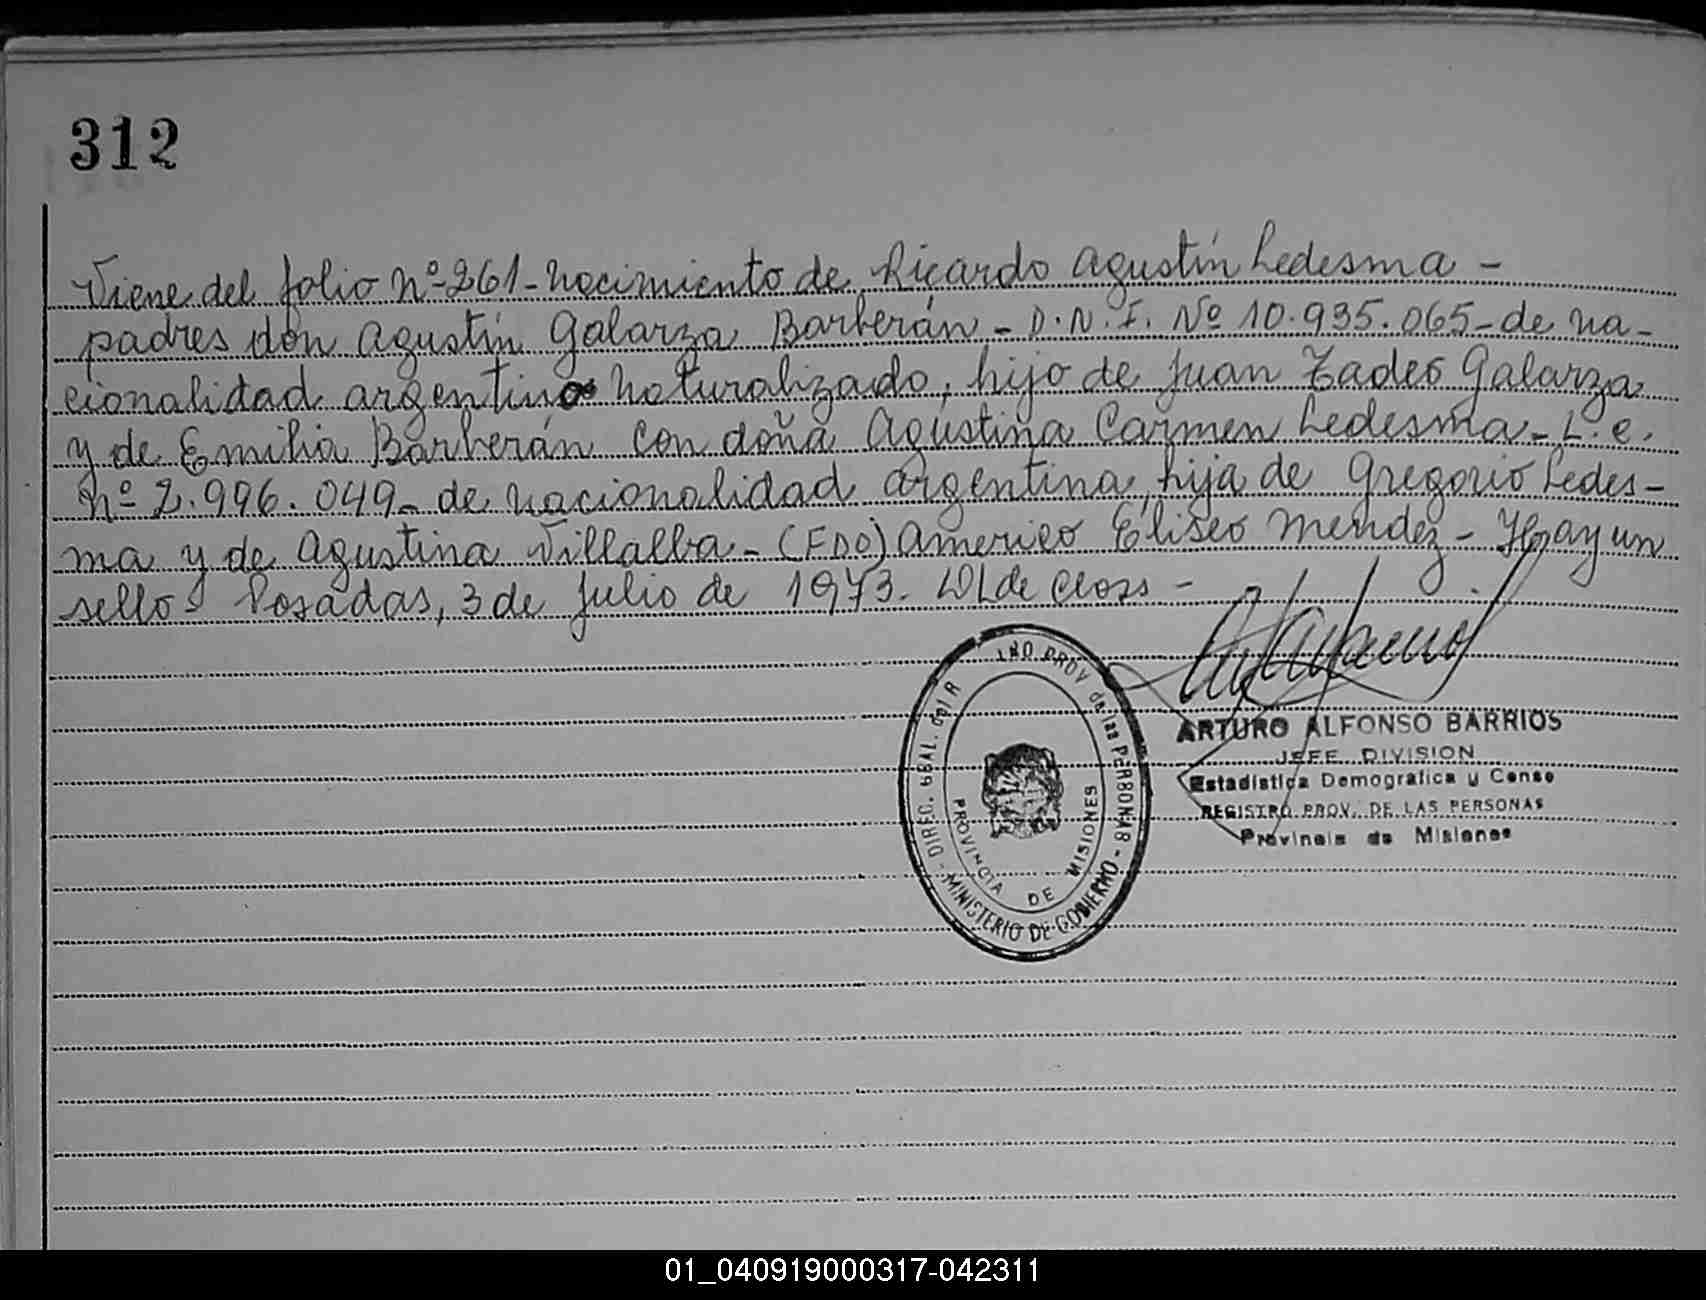 312
Viene del folio Nº 261 - Nacimiento de Ricardo Agustín Ledesma -
padres don Agustín Galarza Barberán - D.N.I. Nº 10.935.065 - de na-
cionalidad argentino Naturalizado, hijo de Juan Tadeo Galarza
y de Emilia Barberán con doña Agustina Carmen Ledesma - L.C.
Nº 2.996.049 - de nacionalidad argentina, hija de Gregorio Ledes-
ma y de Agustina Villalba - (FDO) Americo Eliseo Mendez - Hay un
sello Posadas, 3 de Julio de 1973. de Closs -
DIREC. GRAL. del R PROV de las PERSONAS - MINISTERIO DE GOBIERNO -
PROVINCIA DE MISIONES
ARTURO ALFONSO BARRIOS
JEFE DIVISION
Estadistica Demografica y Censo
REGISTRO PROV. DE LAS PERSONAS
Provincia de Misiones
01_040919000317-042311